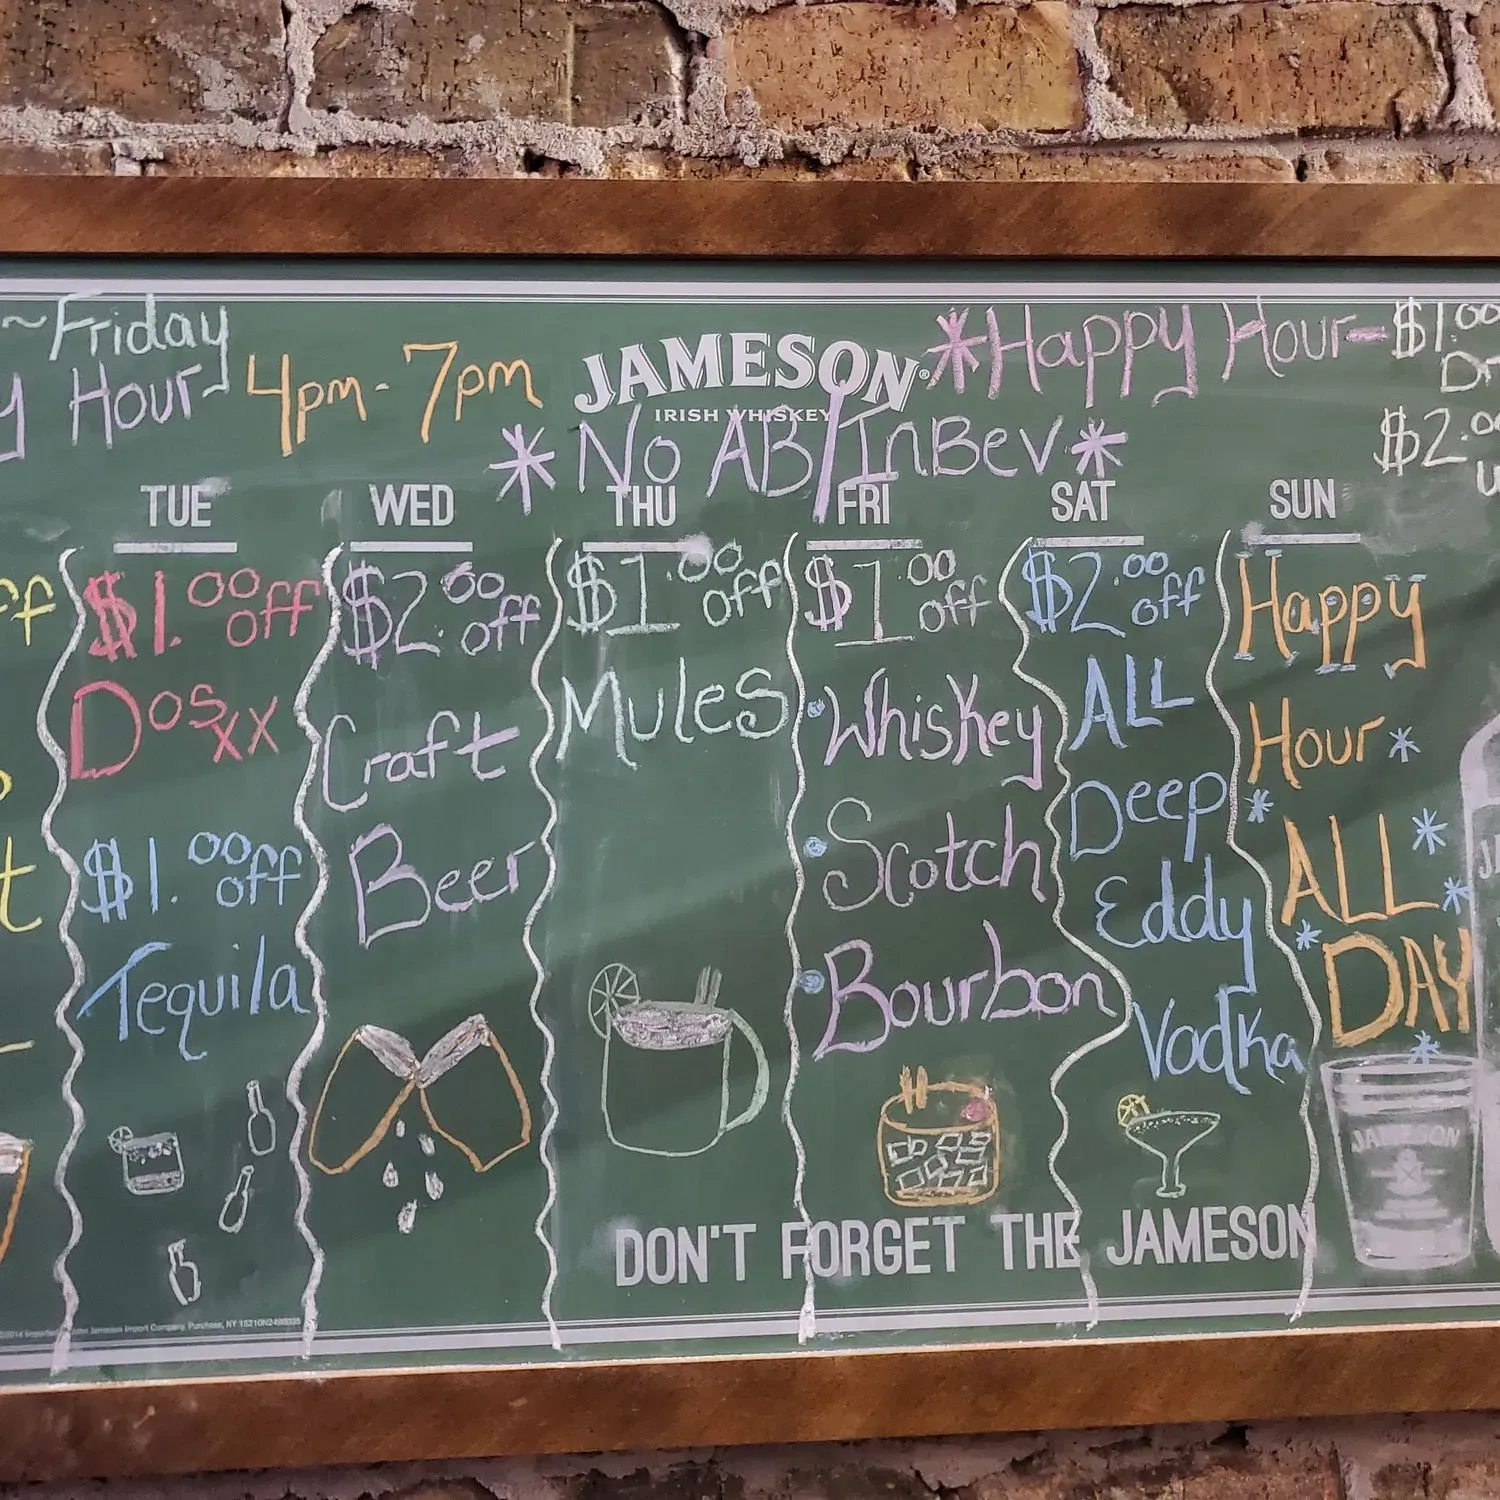 ~Friday
Hour- 4pm-7pm
JAMESON®
IRISH WHISKEY
*No AB/InBev*
*Happy Hour-$1.00
$2.00
TUE
$1.00 off
Dos xx
$1.00 off
Tequila
WED
$2.00 off
Craft
Beer
THU
$1.00 off
Mules
FRI
$1.00 off
• Whiskey
• Scotch
• Bourbon
SAT
$2.00 off
ALL
Deep
Eddy
Vodka
SUN
Happy
Hour*
*ALL*
*DAY*
*
JAMESON
DON'T FORGET THE JAMESON